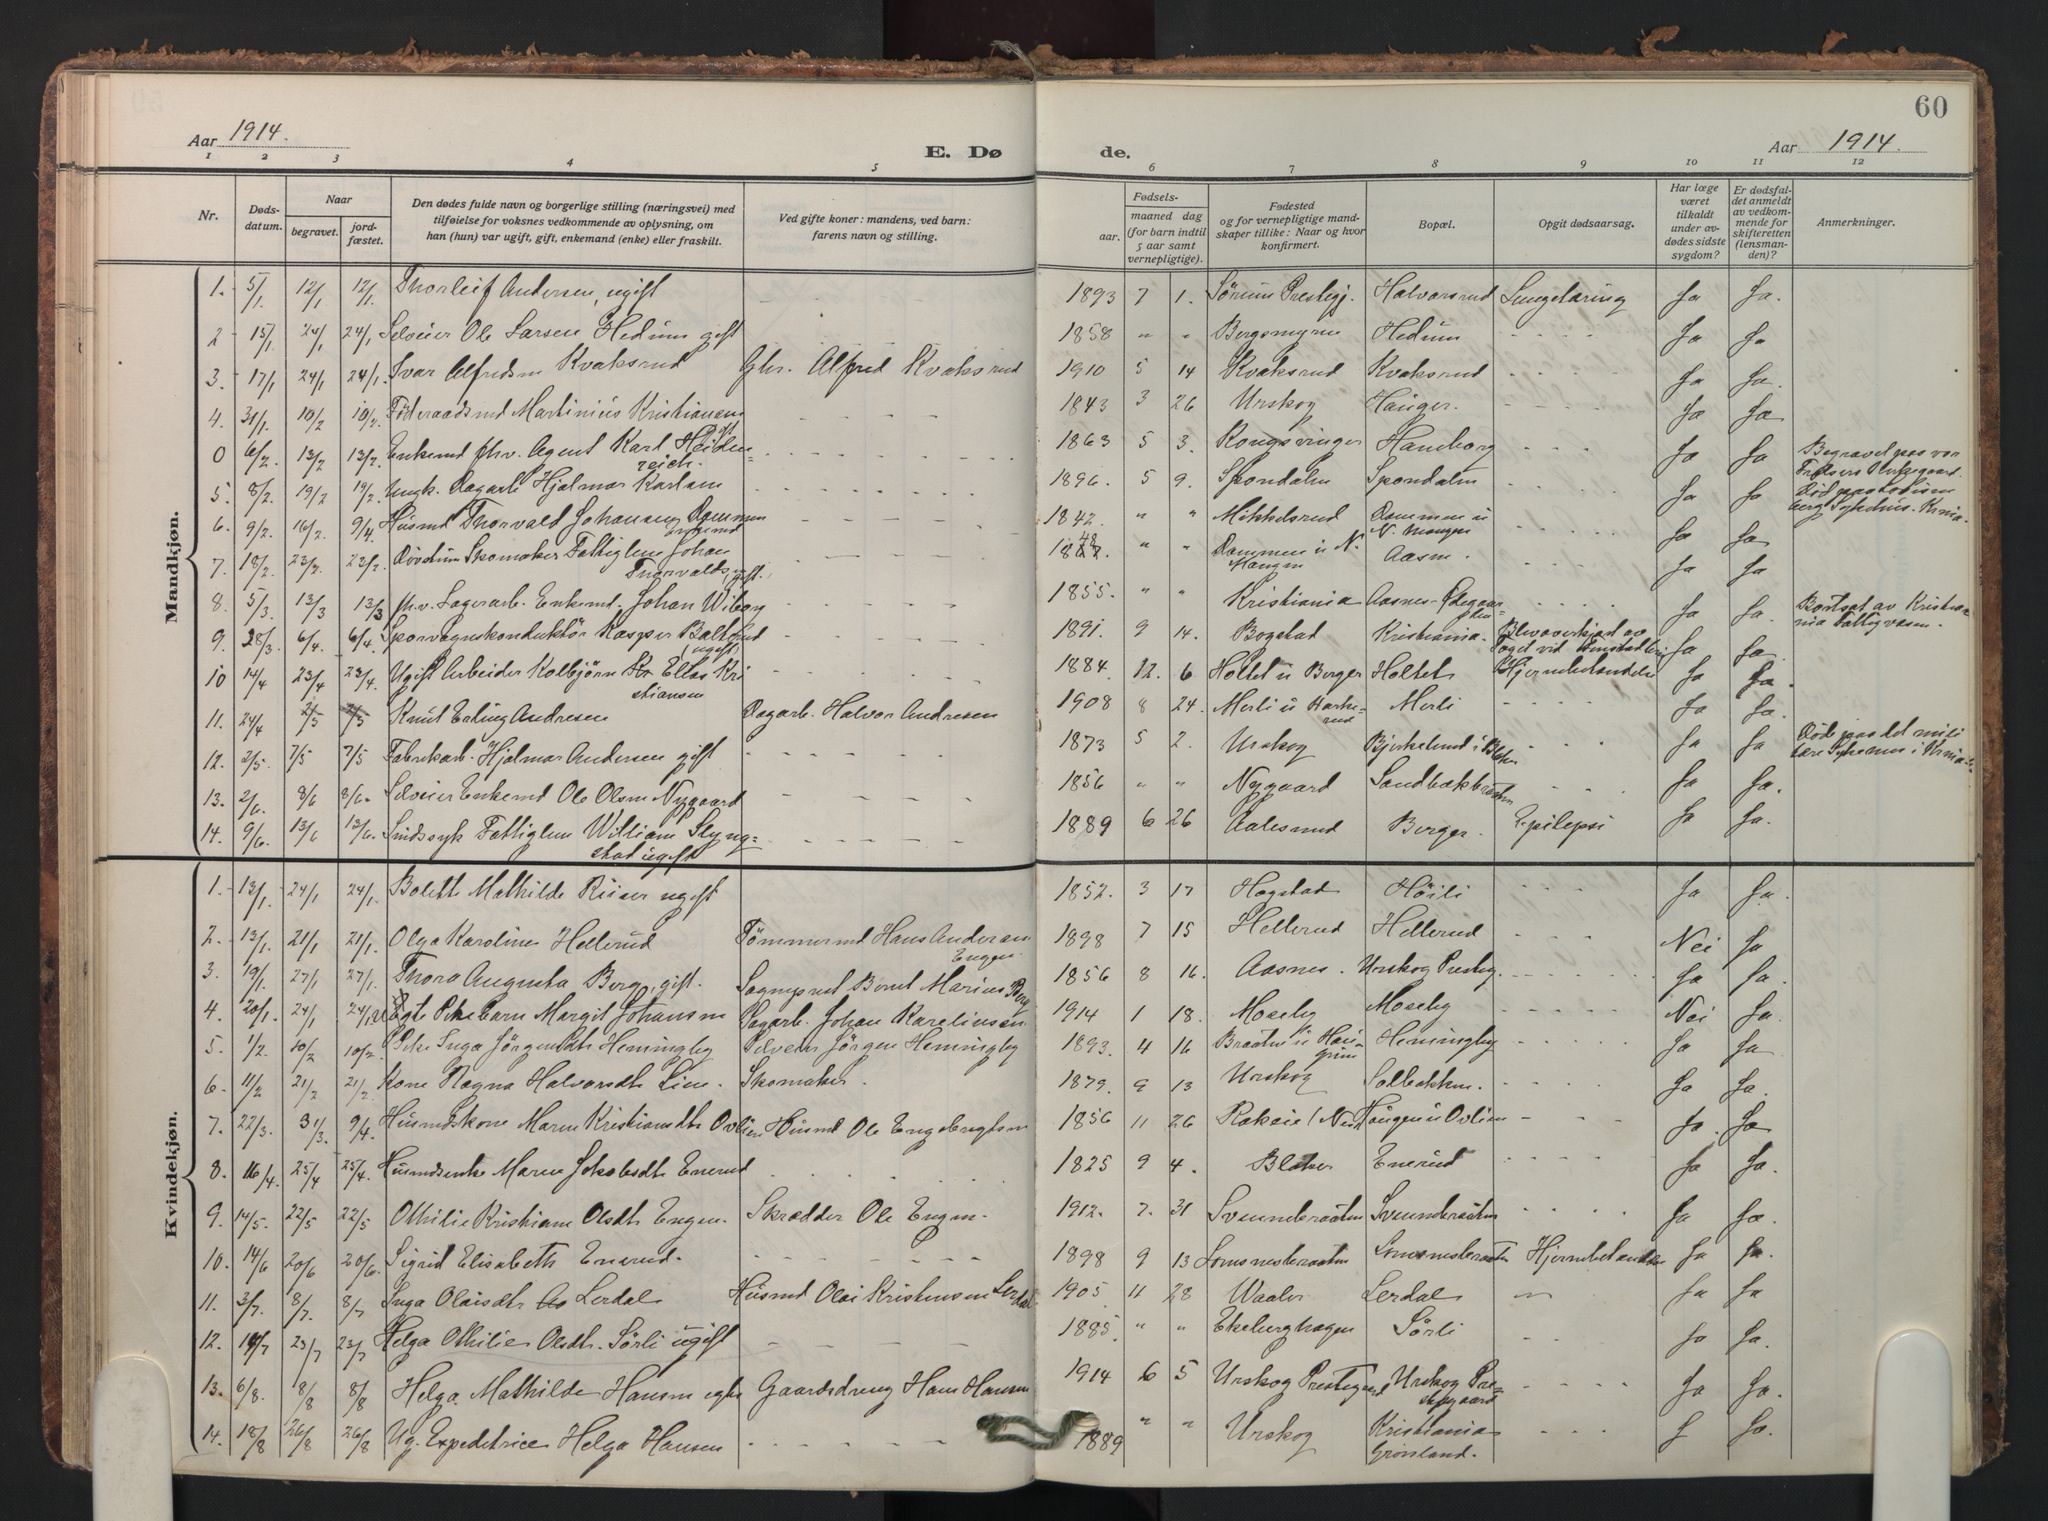 60
Aar 1914.
E. Dø
de.
Aar 1914.
1 2 3 4 5 6 7 8 9 10 11 12
Nr.
Døds-
datum.
Naar
begravet.
jord-
fæstet.
Den dødes fulde navn og borgerlige stilling (næringsvei) med
tilføielse for voksnes vedkommende av oplysning, om
han (hun) var ugift, gift, enkemand (enke) eller fraskilt.
Ved gifte koner: mandens, ved barn:
farens navn og stilling.
Fødsels-
aar.
maaned dag
(for barn indtil
5 aar samt
vernepligtige).
Fødested
og for vernepligtige mand-
skaper tillike: Naar og hvor
konfirmert.
Bopæl.
Opgit dødsaarsag.
Har læge
været
tilkaldt
under av-
dødes sidste
sygdom?
Er dødsfal-
det anmeldt
av vedkom-
mende for
skifteretten
(lensman-
den)?
Anmerkninger.
Mandkjøn.
1. 5/1. 12/1 12/1. Thorleif Andersen, ugift 1893 7 1. Sørum Prestegj. Halvorsrud Lungetæring Ja Ja.
2 15/1. 24/1 24/1 Selveier Ole Larsen Hedum gift 1858 " " Bergsmyren Hedum Ja Ja
3. 17/1 24/1 24/1 Ivar Alfredsen Kvaksrud Gbr. Alfred Kvaksrud 1910 5 14 Kvaksrud Kvaksrud Ja Ja.
4. 31/1. 10/2 10/2. Føderaadsmd Martinius Kristiansen gift 1843 3 26 Urskog Hauger. Ja Ja
0 6/2 13/2 13/2. Enkemd fhv. Agent Karl Heiden-
reich. 1863 5 3. Kongsvinger Hamborg Ja Ja Begravet paa vor
Frelsers Kirkegaard.
5. 8/2. 19/2 19/2. Ungk. Dagarb. Hjalmar Karlsen 1896. 5 9. Spondalen Spondalen Ja Ja Død paa
Sykehus. Krnia.
6. 9/2. 16/2. 9/4. Husmd Thorvald Johansen Dammen 1842. " " Mikkelsrud Dammen u
N. Mangen Ja Ja
7. 18/2. 23/2 23/2 Døvstum Skomaker Fattiglem Johan
Thorvalds. ugift. 1848. " " Dammen u N.
Mangen Aasen. Ja Ja
8. 5/3. 13/3 13/3 fh.v. Lagerarb. Enkemd. Johan Wiborg 1855. " " Kristiania Aasnes- Ja Ja Bortsat av Kristia-
nia Fattigvæsen.
9. 28/3. 6/4. 6/4. Sporvognskonduktør Kasper
ugift 1891. 9 14. Bogstad Kristiania. Blev overkjørt av
Toget vid Ja Ja
10 14/4 23/4 23/4. Ugift Arbeider Kolbjørn Elias Kri
stiansen 1884. 12. 6 Holtet u Berger Holtet Hjernebetændelse Ja Ja.
11. 24/4 2/5 2/5 Knut Erling Andresen Dagarb. Halvor Andresen 1908 8 24. Merli u Merli Ja Ja.
12. 2/5. 7/5 7/5 Fabrikarb. Hjalmar Andersen gift 1873 5 2. Urskog Bjerkelund i Blaker Ja Ja Død paa det mili
tære Sykehus i Krnia.
13. 2/6. 8/6 8/6. Selveier Enkemd Ole Olsen Nygaard 1856 " " Nygaard Sandbækbraaten Ja Ja.
14. 9/6. 13/6 13/6. Sindssyk Fattiglem William Slyng-
stad ugift 1889 6 26 Aalesund Berger. Epilepsi Ja Ja.
Kvindekjøn.
1. 13/1. 24/1 24/1. Bolette Mathilde Riiser ugift 1852. 3 17 Hogstad Høili Ja Ja.
2. 13/1. 21/1 21/1. Olga Karoline Hellerud Tømmermd Hans Andersen
Engen. 1898 7 15 Hellerud Hellerud Nei Ja
3. 19/1. 27/1 27/1. Thora Augusta Berg, gift. Berent Marius Berg 1856 8 16. Aasnes. Urskog Presteg. Ja Ja.
4. 20/1. 24/1 24/1 Uægte Pikebarn Margit Johansen Dagarb. Johan Karelinsen 1914 1 18. Moseby Moseby Nei Ja.
5. 1/2. 10/2 10/2. Pike Inga Jørgensdtr Hemingby Selveier Jørgen Hemingby 1893. 4 16 Braaten u Hemingby Ja Ja
6. 11/2 21/2 21/2. Kone Ragna Halvorsdtr Lien. Skomaker. 1879. 9 13 Urskog Solbakken. Ja Ja.
7. 22/3. 31/3. 9/4. Husmdskone Maren Kristiansdtr Ovlien Husmd Ole Engebregtsen 1856 11 26 Haugen u Ovlien Ja. Ja
8. 16/4. 25/4 25/4. Husmdsenke Maren Jakobsdtr Enerud 1825 9 4. Blaker Enerud Ja Ja.
9. 14/5. 22/5 22/5 Othilie Kristiane Olsdtr Engen. Skrædder Ole Engen. 1912. 7. 31 Svenneberaaten Svenneberaaten Ja Ja.
10. 14/6 20/6 20/6. Sigrid Elisabeth Enerud. 1898 9 13 Lomsnesbraaten Lomsnesbraaten Hjernebetændelse Ja Ja.
11. 3/7. 8/7 8/7 Inga Olaisdtr Lerdal Husmd Olai Kristensen Lerdal 1905 11 28 Waaler Lerdal Ja Ja
12. 14/7 23/7 23/7 Helga Othilie Olsdtr. Sørli ugift 1885. " " Ekeberghagen Sørli Ja Ja.
13. 6/8. 8/8 8/8 Helga Mathilde Hansen egte Gaardsdreng Hans Hansen 1914 6 5 Urskog Prestegaard Urskog Pre-
stegaard Ja Ja.
14. 18/8 26/8 26/8 Ug. Expeditrice Helga Hansen 1889 " " Urskog Kristiania
Grønland. J Ja.